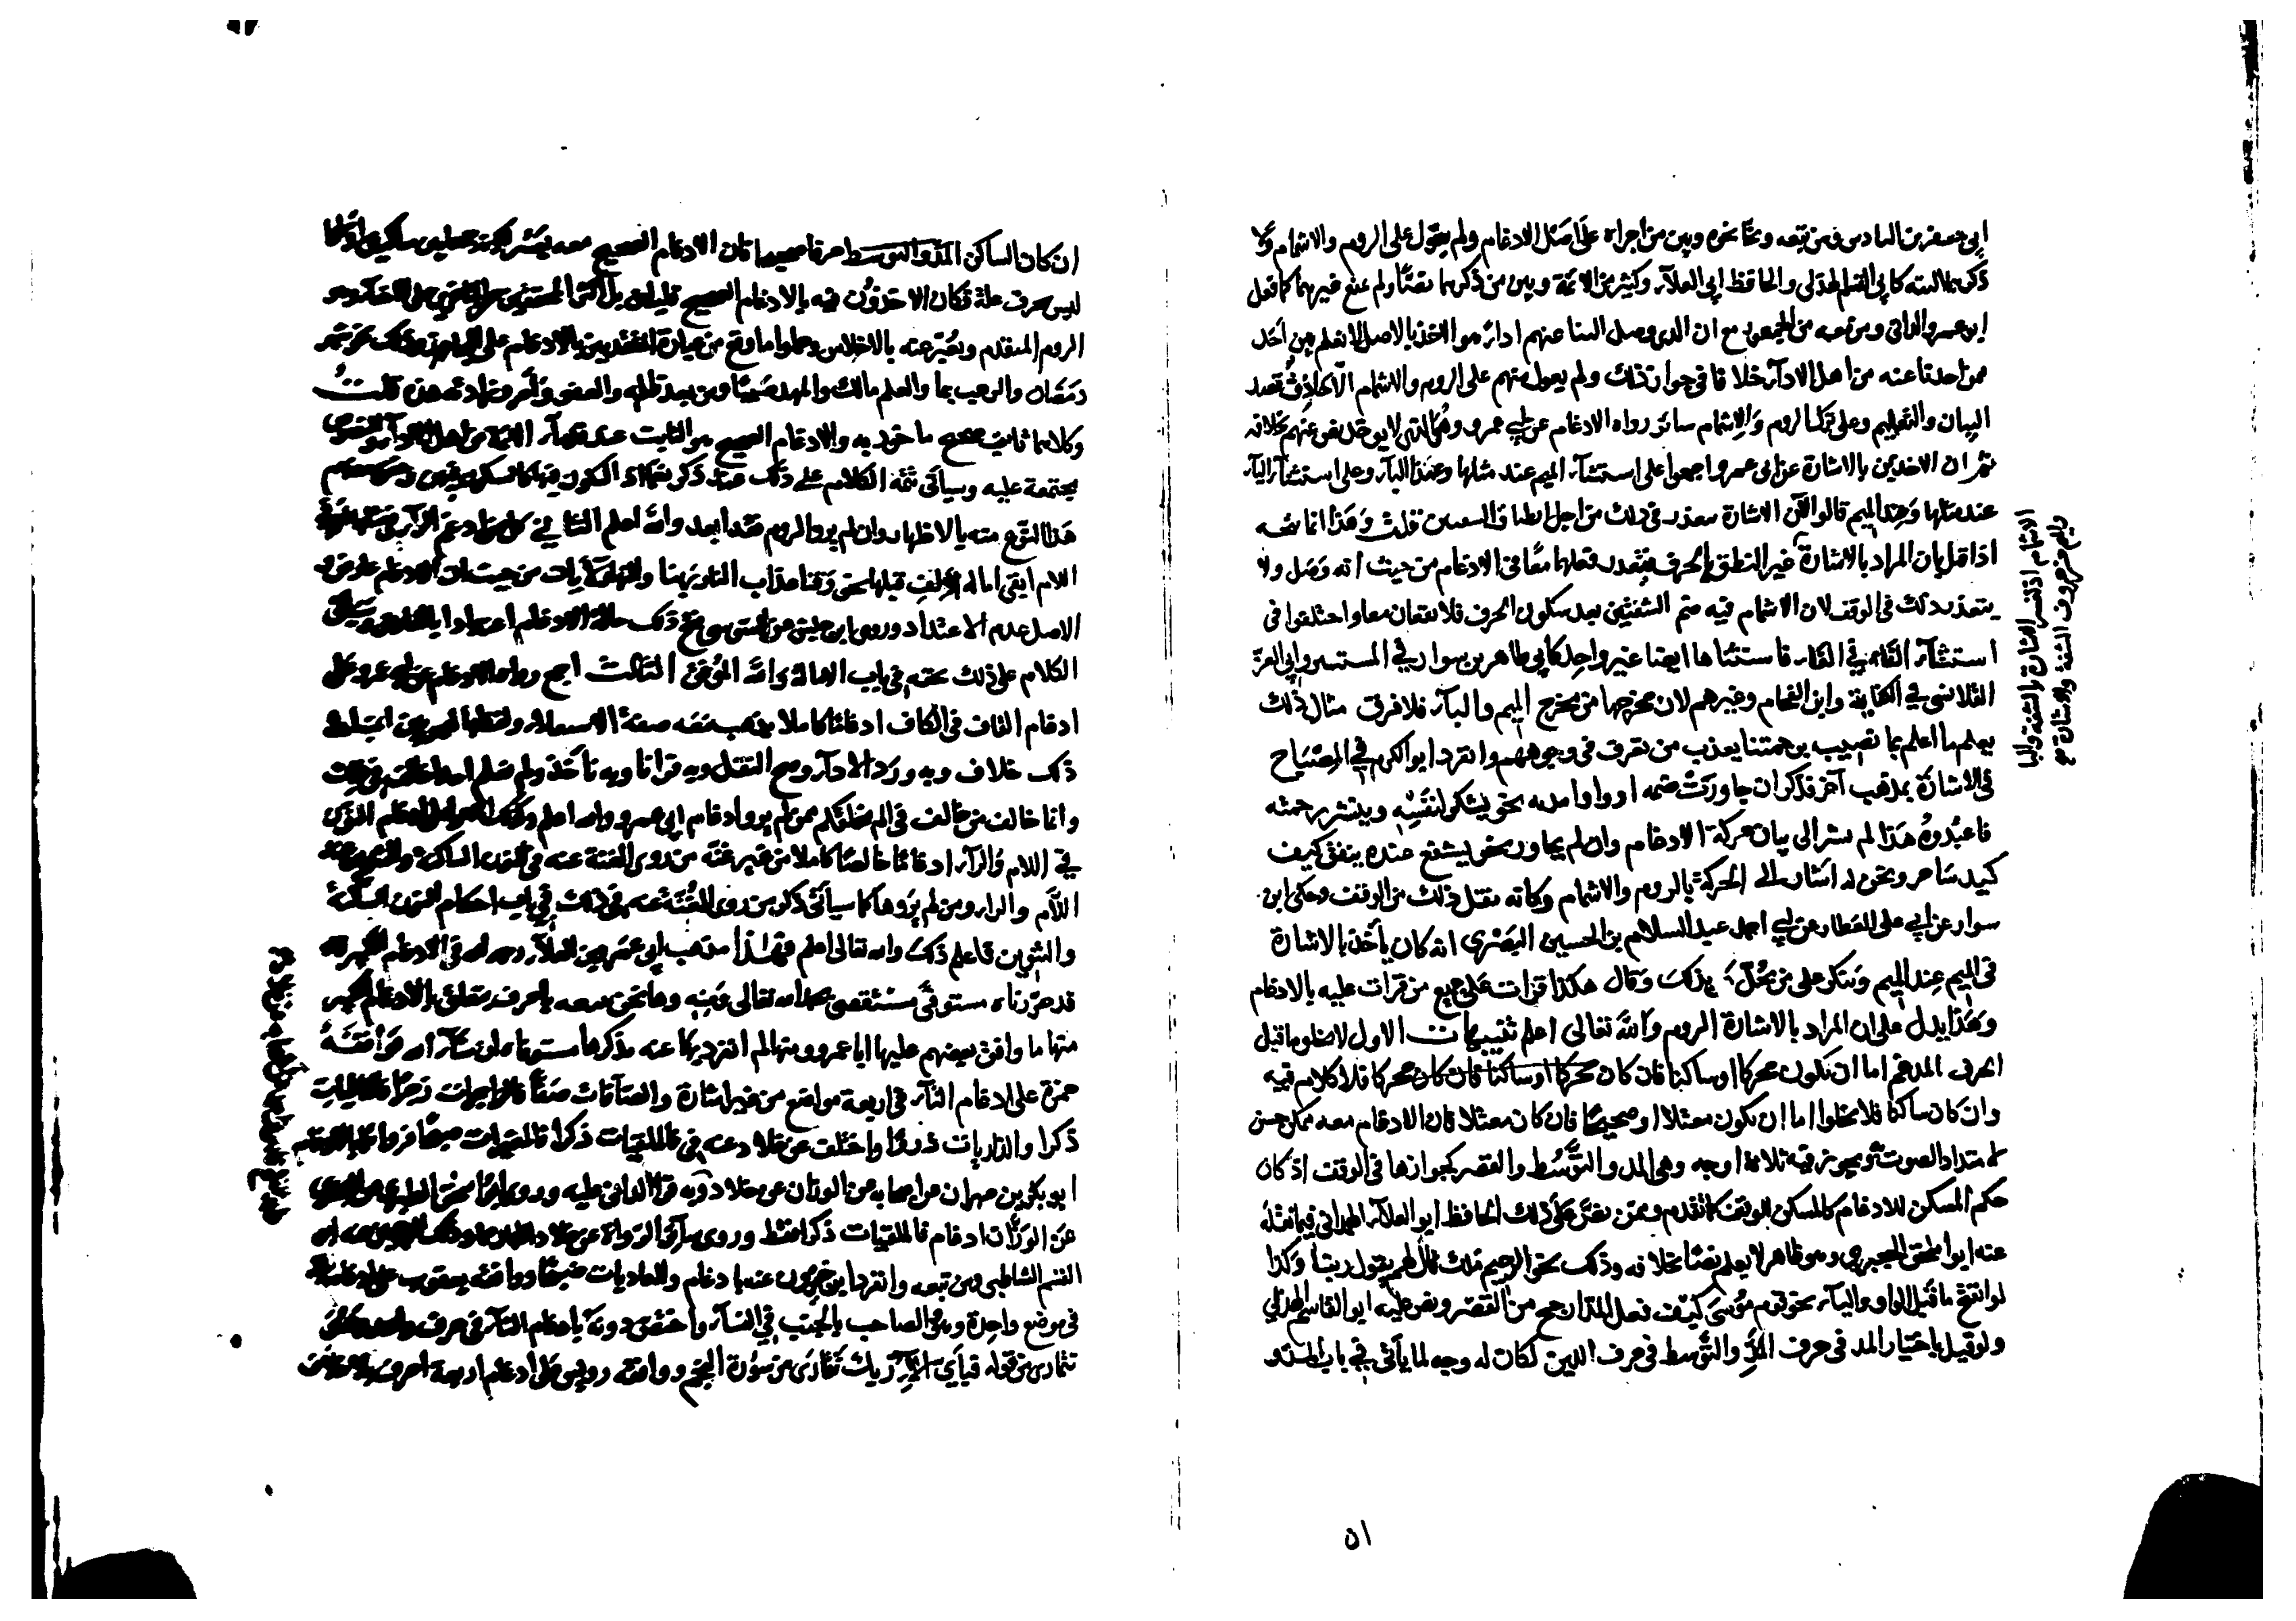 ابى جعفر بن الباذس ومن تبعه ونحا نحوه وبين من اجراه على اصل الادغام ولم يعول على الروم والاشمام ولا
ذكرهما البتة كابى القاسم الهذلى والحافظ ابى العلآء وكثير من الائمة وبين من ذكرهما نصًّا ولم يمنع غيرهما كما فعل
ابو عمرو الدانى ومن تبعه من الجمهور مع ان الذى وصل الينا عنهم ادآء هو الاخذ بالاصل لا نعلم بين احد
ممن اخذنا عنه من اهل الادآء خلافا فى جواز ذلك ولم يعول منهم على الروم والاشمام الّا حاذق قصد
البيان والتعليم وعلى ترك الروم والاشمام سائر رواه الادغام عن ابى عمرو وهو الذى لا يوجد نص عنهم بخلافه
ثم ان الاخذين بالاشارة عن ابى عمرو اجمعوا على استثنآء الميم عند مثلها وعند البآء وعلى استثنآء البآء
عند مثلها وعند الميم قالوا لان الاشارة تتعذر فى ذلك من اجل انطباق الشفتين قلت وهذا انما يتجه
اذا قيل بان المراد بالاشارة غير النطق بالحرف فيتعذر فعلهما معًا فى الادغام من حيث انه وصل ولا
يتعذر ذلك فى الوقف لان الاشمام فيه ضم الشفتين بعد سكون الحرف فلا يقعان معا واختلفوا فى
استثنآء الفآء فى الفآء فاستثناها ايضا غير واحد كابى طاهر بن سوار فى المستنير وابى العز
القلانسى فى الكفاية وابن الفحام وغيرهم لان مخرجها من مخرج الميم والبآء فلا فرق مثال ذلك
يعلم ما اعلم بما نصيب برحمتنا يعذب من تعرف فى وجوههم وانفرد ابو الكرم فى المصباح
فى الاشارة بمذهب آخر فذكر ان جاورت ضمه او واوا مديه نحو يشكر لنفسه وينشر رحمته
فاعبدوه هذا لم يشر الى بيان حركة الادغام وان لم يجاور نحو يشفع عنده ينفق كيف
كيد ساحر ونحن له اشار الى الحركة بالروم والاشمام وكانه نقل ذلك من الوقف وحكى ابن
سوار عن ابى على العطار عن ابى احمد عبد السلام بن الحسين البصرى انه كان يأخذ بالاشارة
فى الميم عند الميم وينكر على من يخل بذلك وقال هكذا قرات على جميع من قرات عليه بالادغام
وهذا يدل على ان المراد بالاشارة الروم والله تعالى اعلم تنبيهات الاول لا يخلو ما قبل
الحرف المدغم اما ان يكون محركا او ساكنا فان كان محركا او ساكنا فان كان محركا فلا كلام فيه
وان كان ساكنا فلا يخلوا اما ان يكون معتلا او صحيحًا فان كان معتلا فان الادغام معه ممكن حسن
لامتداد الصوت ويجوز فيه ثلاثة اوجه وهى المد والتوسط والقصر كجوازها فى الوقف اذ كان
حكم المسكن للادغام كالمسكن للوقف كما تقدم وممن نص على ذلك الحافظ ابو العلآء الهمدانى فيما نقله
عنه ابو اسحق الجعبرى وهو ظاهر لا يعلم نصًا بخلافه وذلك نحو الرحيم ملك قال لهم يقول ربنا وكذا
لو انفتح ما قبل الواو واليآء نحو قوم موسى كيف فعل المد ارجح من القصر ونص عليه ابو القاسم الهذلى
ولو قيل باختيار المد فى حرف المد والتوسط فى حرف اللين لكان له وجه لما يأتى فى باب المد و
٥١
ان كان الساكن المد والتوسط حرفا صحيحا فان الادغام الصحيح معه يعسر لكونه جمعا بين ساكنين اولهما
ليس حرف علة فكان الاخذون فيه بالادغام الصحيح قليلين بل اكثر المحققين من المتاخرين على الاخفآء وهو
الروم المتقدم ويعبر عنه بالاختلاس وحملوا ما وقع من عبارة المتقدمين بالادغام على المجاز وذلك نحو شهر
رمضان والرعب بما والعلم مالك والمهد صبيًا ومن بعد ظلمه والعفو وأمر وزادته هذه قلت
وكلاهما ثابت صحيح ماخوذ به والادغام الصحيح هو الثابت عند قدمآء الائمة من اهل الادآء والنصوص
مجتمعة عليه وسيأتى تتمة الكلام على ذلك عند ذكر نعما اذ السكون فيها كالسكون فيهن
هذا النوع منه بالاظهار وان لم يرد الروم فقد ابعد والله اعلم الثانى كل من ادغم الرآء فى مثلها او فى
اللام ابقى امالة الالف قبلها نحو وقنا عذاب النار ربنا والنهار لآيات من حيث ان الادغام عارض و
الاصل عدم الاعتداد وروى ابن حبش عن السوسى فتح ذلك حالة الادغام اعتدادا بالعارض وسيأتى
الكلام على ذلك بحقه فى باب الامالة والله الموفق الثالث اجمع رواة الادغام عن ابى عمرو على
ادغام القاف فى الكاف ادغاما كاملا يذهب معه صفة الاستعلاء ولفظها ليس بين ائمتنا فى
ذلك خلاف وبه ورد الادآء وصح النقل وبه قرانا وبه نأخذ ولم نعلم احدا خالف فى ذلك
وانما خالف من خالف فى الم نخلقكم ممن لم يرو ادغام ابى عمرو والله اعلم وكذلك اجمعوا على ادغام النون
فى اللام والرآء ادغاما خالصًا كاملا من غير غنه من روى الغنة عنه فى النون الساكنة والتنوين عند
اللام والراء ومن لم يروها كما سيأتى ذكر من روى الغنة عنه فى ذلك فى باب احكام النون الساكنة
والتنوين فاعلم ذلك والله تعالى اعلم فهذا مذهب ابى عمرو بن العلآء رحمه الله فى الادغام الكبير قد
قد حررناه مستوفى مستقصى بحمد الله تعالى ومنه وها نحن نتبعه باحرف تتعلق بالادغام الكبير
منها ما وافق بعضهم عليها ابا عمرو ومنها ما انفرد بها عنه نذكرها مستوفاة ان شآء الله فوافقه
حمزة على ادغام التآء فى اربعة مواضع من غير اشارة والصآفات صفًا فالزاجرات زجرًا فالتاليات
ذكرا والذاريات ذروًا واختلف عن خلاد عنه فى فالملقيات ذكرا فالمغيرات صبحًا فرواهما بالادغام
ابو بكر بن مهران عن اصحابه عن الوزان عن خلاد وبه قرأ الدانى عليه وروى ابو اسحق الطبرى عن البحترى
عن الوزان ادغام فالملقيات ذكرا فقط وروى سآئر الرواة عن خلاد اظهارهما وذلك
القسم الشاطبى ومن تبعه وانفرد ابن خيرون عنه بادغام والعاديات ضبحًا ووافقه يعقوب على ادغام البآء
فى موضع واحد وهو الصاحب بالجنب فى النسآء واختص دونه بادغام التآء فى حرف واحد وهو
تتمارى من قوله فبأى آلآء ربك تتمارى من سورة النجم ووافقه رويس على ادغام اربعة احرف